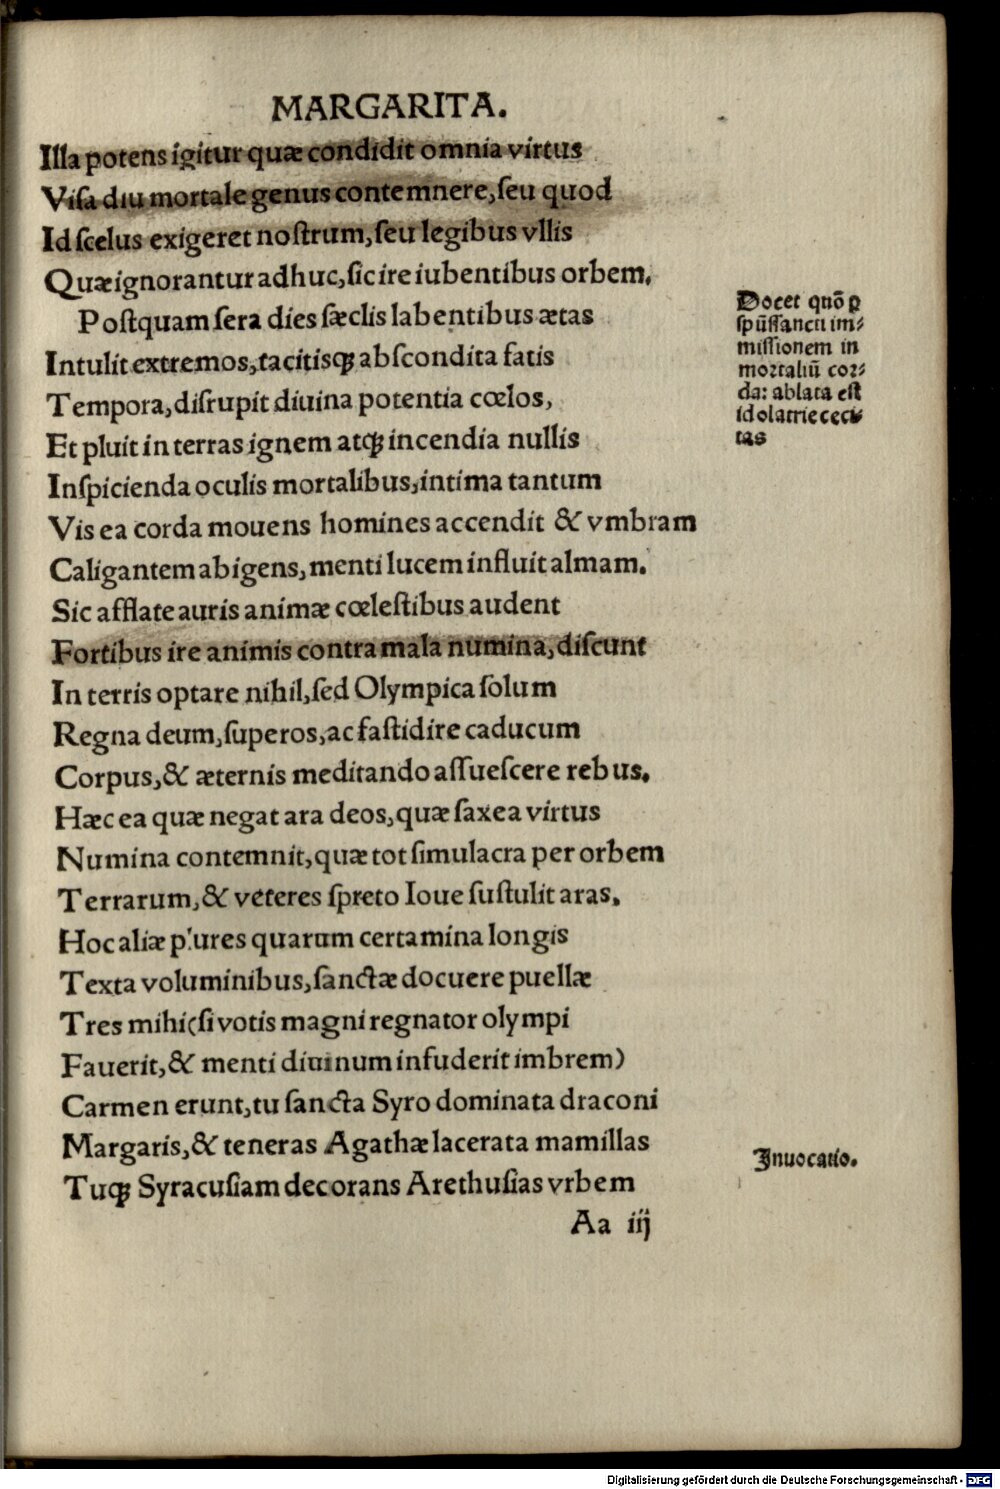 MARGARITA.
Illa potens igitur quæ condidit omnia virtus
Viſa diu mortale genus contemnere, ſeu quod
Id ſcelus exigeret noſtrum, ſeu legibus vllis
Quæ ignorantur adhuc, ſic ire iubentibus orbem.
Poſtquam ſera dies ſæclis labentibus ætas
Intulit extremos, tacitisꝗ abſcondita fatis
Tempora, diſrupit diuina potentia cœlos,
Et pluit in terras ignem atꝗ incendia nullis
Inſpicienda oculis mortalibus, intima tantum
Vis ea corda mouens homines accendit & vmbram
Caligantem abigens, menti lucem influit almam.
Sic afflate auris animæ cœleſtibus audent
Fortibus ire animis contra mala numina, diſcunt
In terris optare nihil, ſed Olympica ſolum
Regna deum, ſuperos, ac faſtidire caducum
Corpus, & æternis meditando aſſueſcere rebus.
Hæc ea quæ negat ara deos, quæ ſaxea virtus
Numina contemnit, quæ tot ſimulacra per orbem
Terrarum, & veteres ſpreto Ioue ſuſtulit aras.
Hoc aliæ plures quarum certamina longis
Texta voluminibus, ſanctæ docuere puellæ
Tres mihi (ſi votis magni regnator olympi
Fauerit, & menti diuinum infuderit imbrem)
Carmen erunt, tu ſancta Syro dominata draconi
Margaris, & teneras Agathæ lacerata mamillas
Tuꝗ Syracuſiam decorans Arethuſias vrbem
Aa iij
Docet quō ꝑ
ſpūſſancti im⸗
miſſionem in
mortaliū cor⸗
da: ablata eſt
idolatrie ceci
tas
Inuocatio.
Digitalisierung gefördert durch die Deutsche Forschungsgemeinschaft - DFG